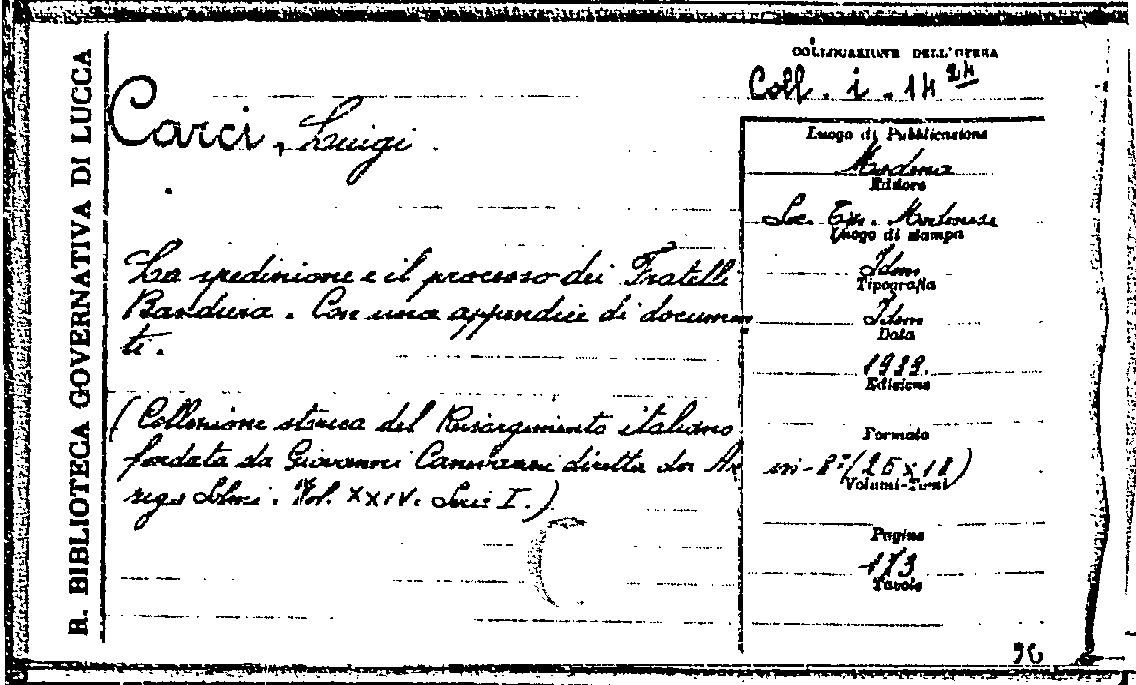 R. BIBLIOTECA GOVERNATIVA DI LUCCA
COLLOCAZIONE DELL'OPERA
Coll. i. 14 24
Carci, Luigi.
La spedizione e il processo dei Fratelli
Bandiera. Con una appendice di documen
ti.
(Collezione storica del Risorgimento italiano
fondata da Giovanni Canevazzi diretta da Ar
rigo Solmi. Vol. XXIV. Serie I.)
Luogo di Pubblicazione
Modena
Editore
Soc. Tip. Modenese
Luogo di stampa
Idem
Tipografia
Idem
Data
1939.
Edizione
Formato
in-8° (25x18)
Volumi-Tomi
Pagine
173
Tavole